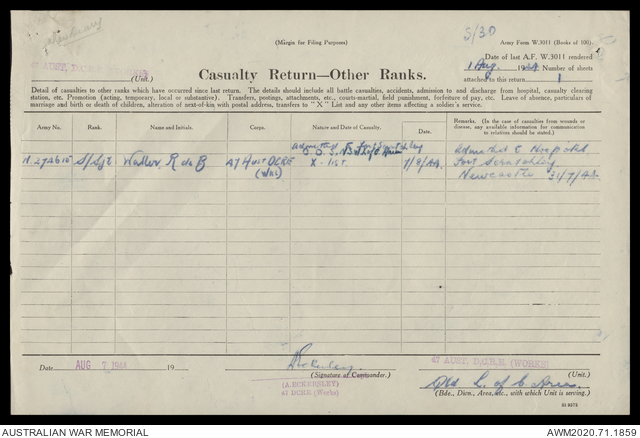 5/30
(Margin for Filing Purposes)
Army Form W.3011 (Books of 100).
Date of last A.F. W.3011 rendered
1 Aug 1944 Number of sheets
attached to this return 1
(Unit.)
Casualty Return—Other Ranks.
Detail of casualties to other ranks which have occurred since last return. The details should include all battle casualties, accidents, admission to and discharge from hospital, casualty clearing
station, etc. Promotion (acting, temporary, local or substantive). Transfers, postings, attachments, etc., courts-martial, field punishment, forfeiture of pay, etc. Leave of absence, particulars of
marriage and birth or death of children, alteration of next-of-kin with postal address, transfers to "X" List and any other items affecting a soldier's service.
Army No. Rank. Name and Initials. Corps. Nature and Date of Casualty. Date. Remarks. (In the case of casualties from wounds or disease, any available information for communication to relations should be stated.)
S/Sgt Waller, R de B 47 Aust DCRE X-list 1/8/44 Admitted C Hospital
(Wks) Fort Scratchley
Newcastle 31/7/44
Date AUG 7 1944 19
(Signature of Commander.)
(A.ECKERSLEY)
47 DCRE (Works)
47 AUST. DCRE (WORKS)
(Unit.)
Qld L. of C Area
(Bde., Divn., Area, etc., with which Unit is serving.)
AUSTRALIAN WAR MEMORIAL
AWM2020.71.1859